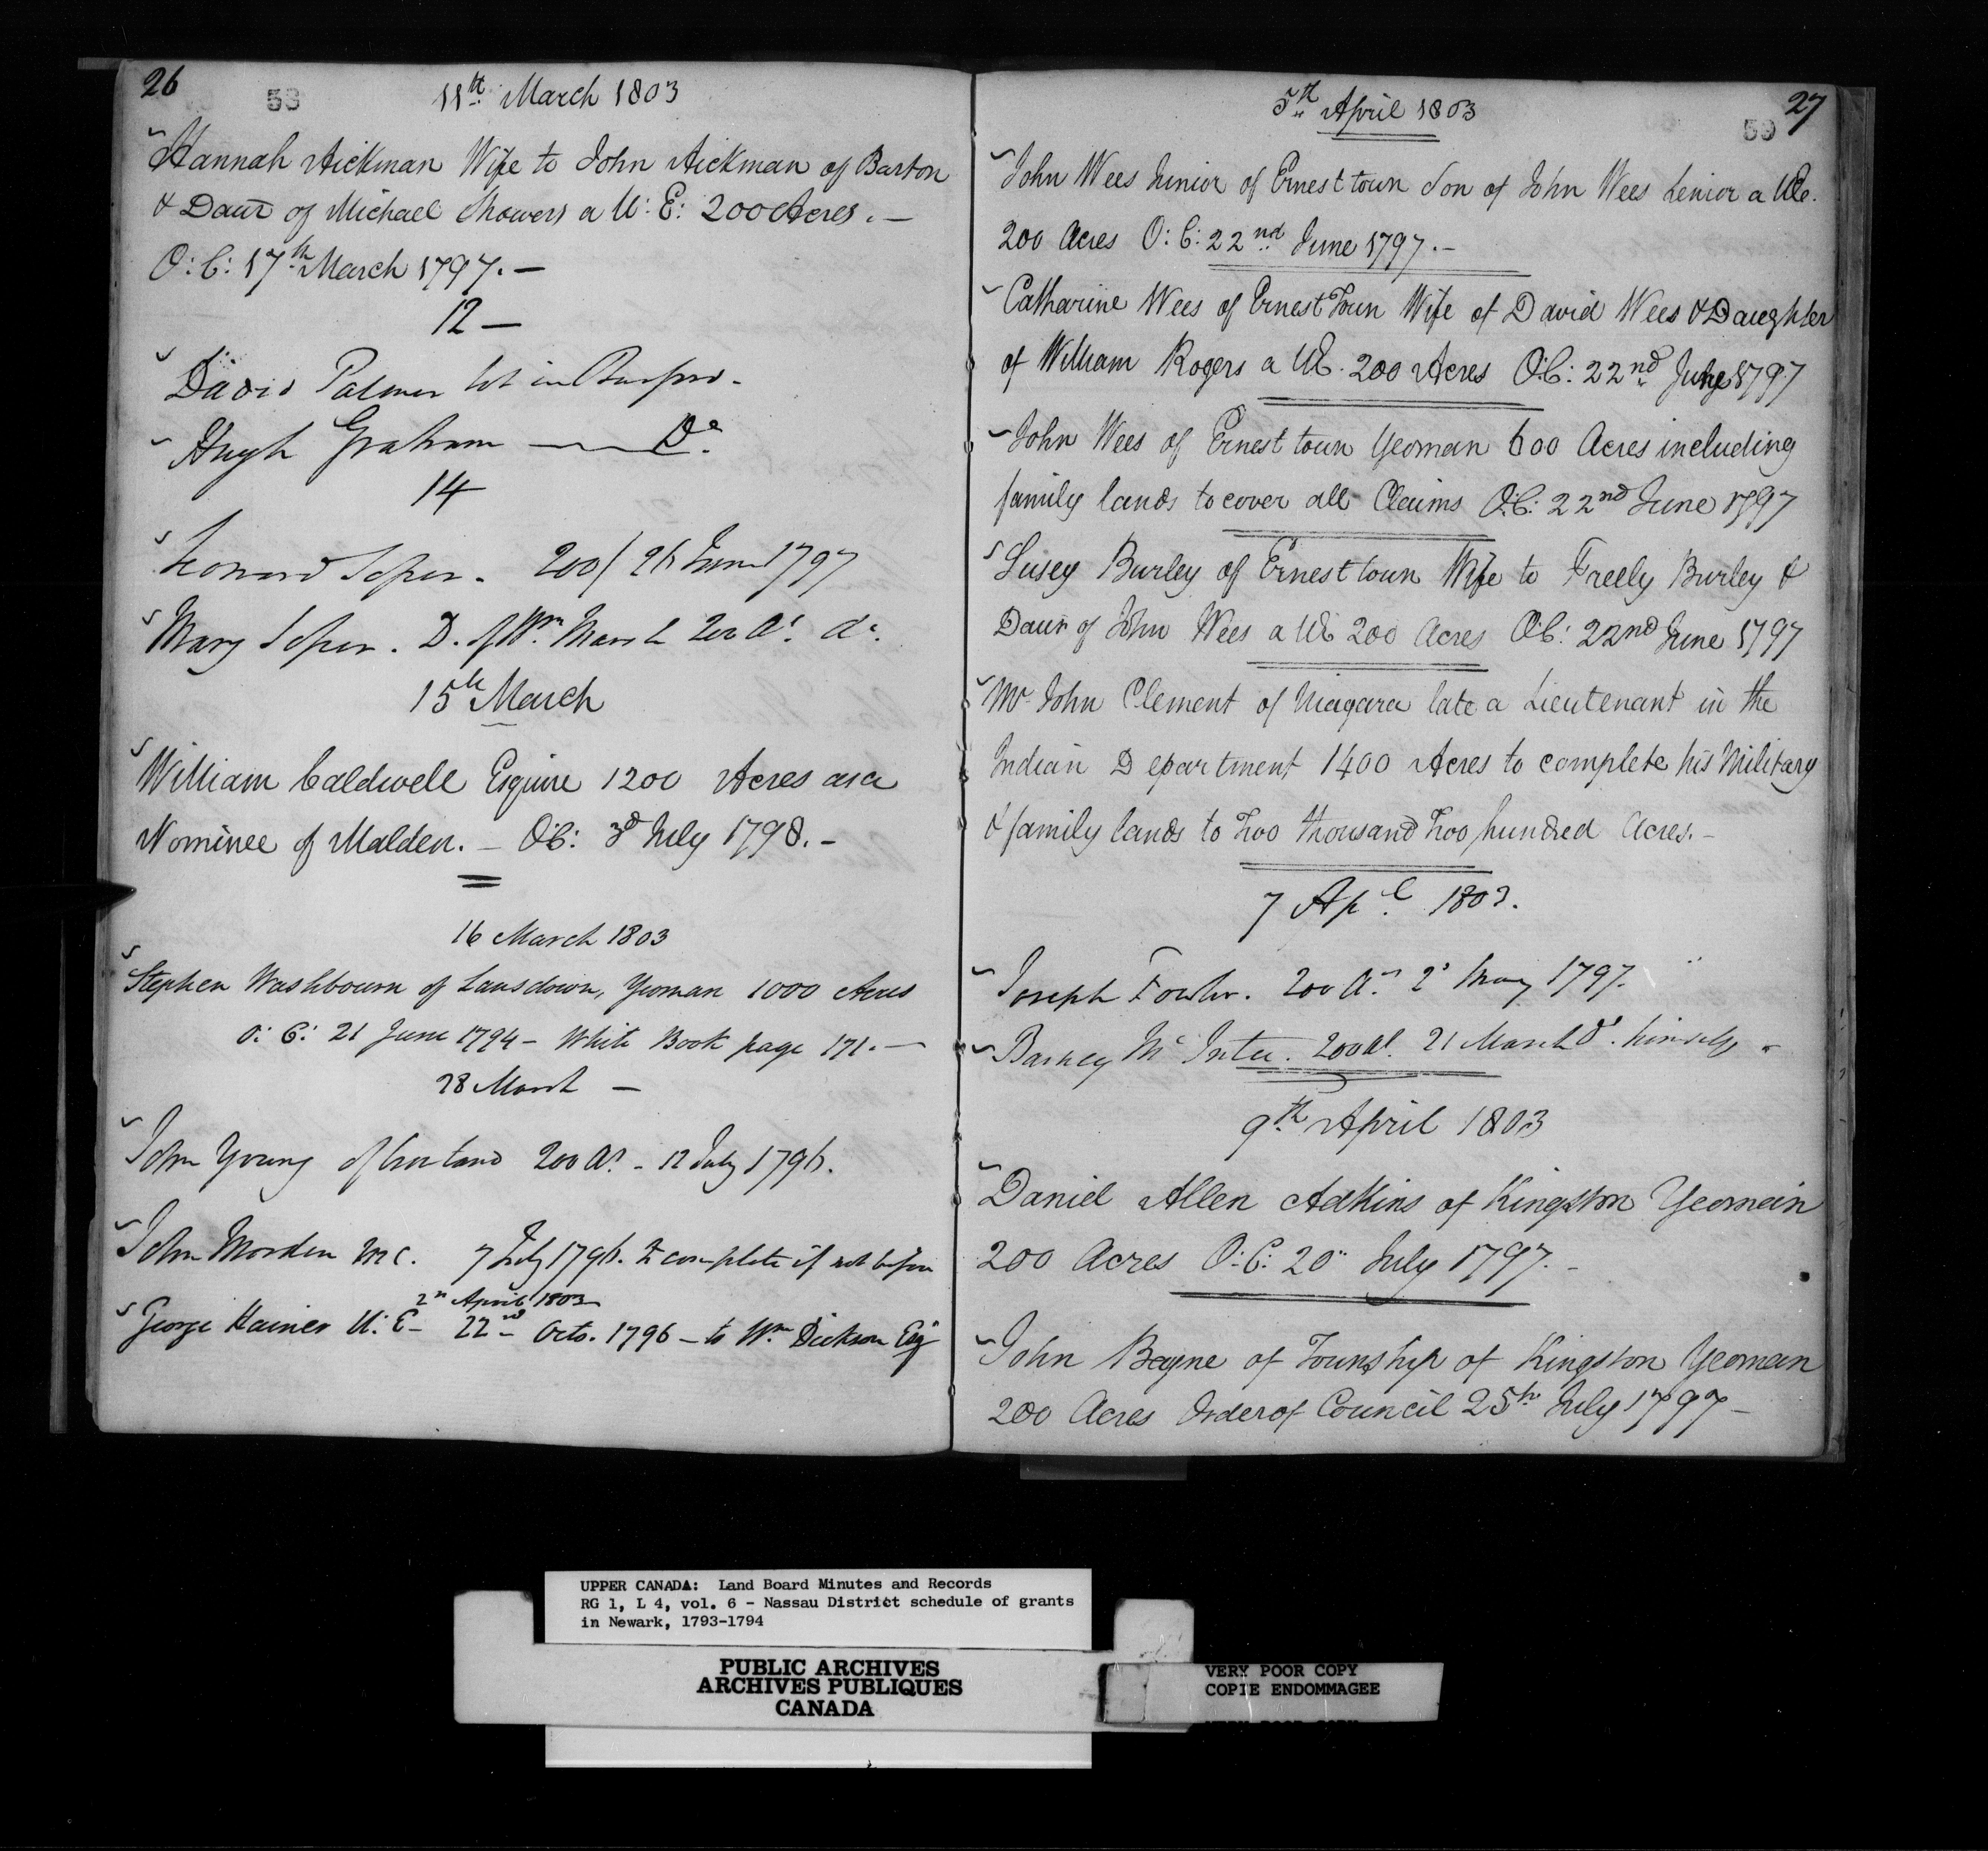 26
58
11th March 1803
Hannah Aickman Wife to John Aickman of Barton
& Daur of Michael Showers a U: E: 200 Acres. —
O: C: 17th March 1797. —
12 —
David Palmer lot in
Hugh Graham —— Do.
14
Leonard Soper. 200 / 26 June 1797
Mary Soper. D. of Wm Marsh 200 As. do.
15th March
William Caldwell Esquire 1200 Acres as a
Nominee of Malden. — O:C: 3d July 1798. —
16 March 1803
Stephen Washbourn of Lansdown, Yeoman 1000 Acres
O: C: 21 June 1794 — White Book page 171. —
28 March —
John Young of 200 As. - 12 July 1796.
John Morden M C. 7 July 1796. to complete if not before
2nd April 1803
George Hainer U: E — 22nd Octo. 1796 — to Wm Dickson Esqr
27
59
5th April 1803
John Wees Junior of Ernest town Son of John Wees Senior a UE.
200 Acres O: C: 22nd June 1797. —
Catharine Wees of Ernest Town Wife of David Wees & Daughter
of William Rogers a UE. 200 Acres O:C: 22nd June 1797
John Wees of Ernest town Yeoman 600 Acres including
family lands to cover all Claims O:C: 22nd June 1797
Susey Burley of Ernest town Wife to Freely Burley &
Daur of John Wees a UE 200 Acres O:C: 22nd June 1797
Mr John Clement of Niagara late a Lieutenant in the
Indian Department 1400 Acres to complete his Military
& family lands to Two thousand Two hundred Acres. —
7 Apl 1803.
Joseph Fowler. 200 As 2d May 1797.
Barney Mc 200 As. 21 March do. himself
9th April 1803
Daniel Allen Adkins of Kingston Yeoman
200 Acres O: C: 20" July 1797. —
John Bayne of Township of Kingston Yeoman
200 Acres Order of Council 25th July 1797 —
UPPER CANADA: Land Board Minutes and Records
RG 1, L 4, vol. 6 - Nassau District schedule of grants
in Newark, 1793-1794
PUBLIC ARCHIVES
ARCHIVES PUBLIQUES
CANADA
VERY POOR COPY
COPIE ENDOMMAGEE